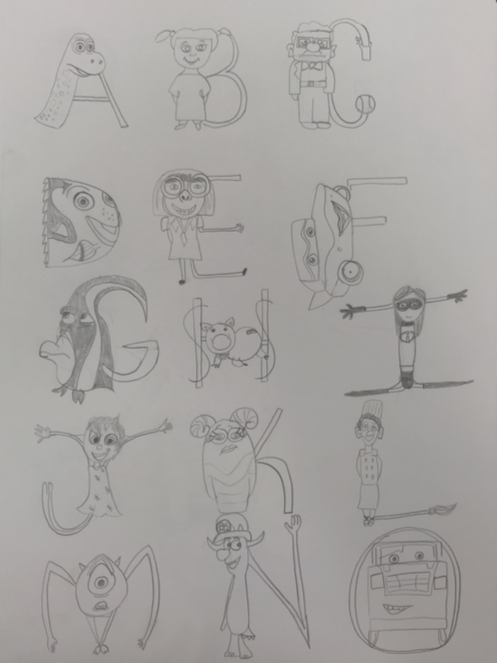 A B C
D E F
G H I
J K L
M N O